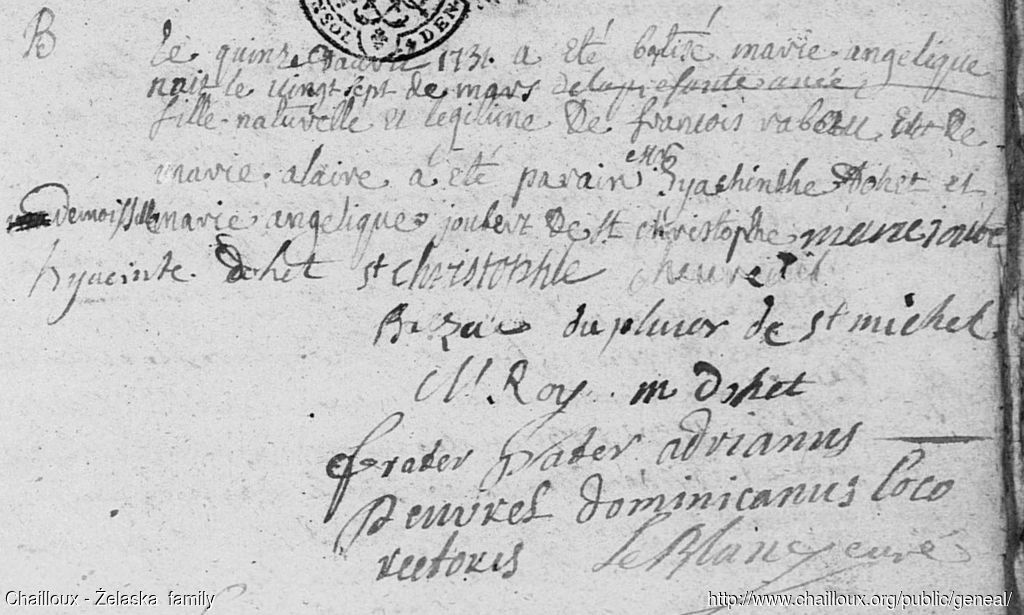 B
le quinze d'avril 1731 a eté batisé marie angelique
nait le vingt sept de mars de la presante anée
fille naturelle et legitime de francois rabeau et de
marie alaire a eté parain Hyachinthe dohet et
demoiselle marie angelique joubert de st christophe marie joube
hyacinte dohet st christophle
du plucor de st michel
M. Roy m dohet
frater pater adrianus
dominicanus loco
rectoris le Blanc curé
Chailloux - Želaska family
http://www.chailloux.org/public/geneal/